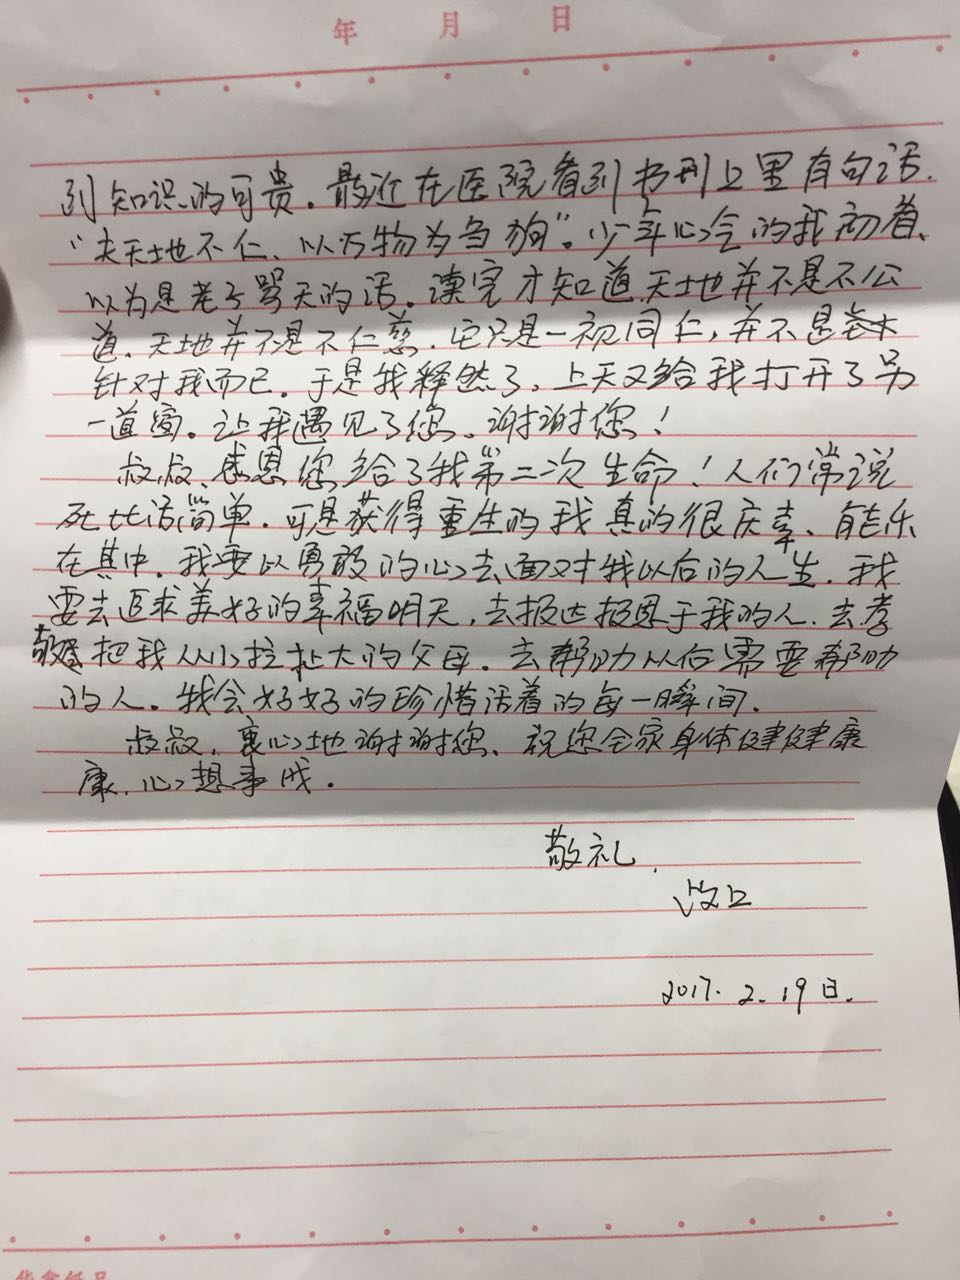 年 月 日
到知识的可贵。最近在医院看到书刊上里有句话.
“夫天地不仁、以万物为刍狗”。少年心会的我初看、
以为是老子骂天的话。读完才知道.天地并不是不公
道.天地并不是不仁慈.它只是一视同仁,并不是
针对我而已.于是我释然了,上天又给我打开了另
一道窗。让我遇见了您。谢谢您!
叔叔、感恩您给了我第二次生命!人们常说
死比活简单.可是获得重生的我真的很庆幸、有能乐
在其中.我要以勇敢的心去面对我以后的人生.我
要去追求美好的幸福明天,去报达报恩于我的人.去孝
敬把我从小拉扯大的父母.去帮助以后需要帮助
的人.我会好好的珍惜活着的每一瞬间.
叔叔,衷心地谢谢您、祝您全家身体健健康
康、心想事成.
敬礼.
2017.2.19日.